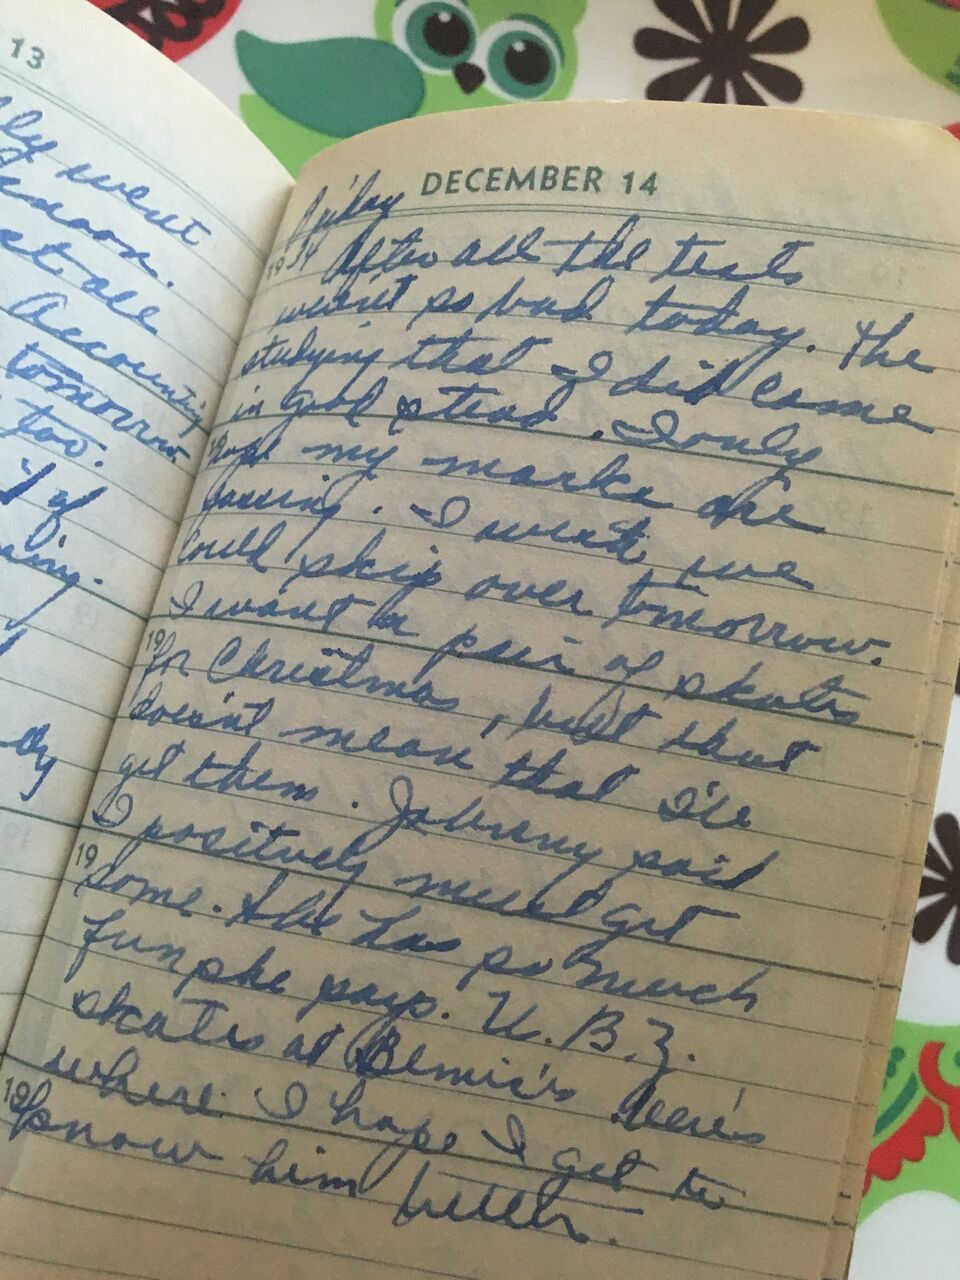 13
ly went
noon.
at all
Accounting
tomorrow
too.
if
ing.
by
DECEMBER 14
Friday
1934 After all the tests
weren't so bad today. The
studying that I did came
in good stead. I only
hope my marks are
passing. I wish we
could skip over tomorrow.
I want a pair of skates
19 for Christmas, but that
doesn't mean that I'll
get them. Johnny said
I positively must get
19 some. She has so much
fun she says. U.B.Z.
skates at Bemis's here's
where I hope I get to
19 know him better.